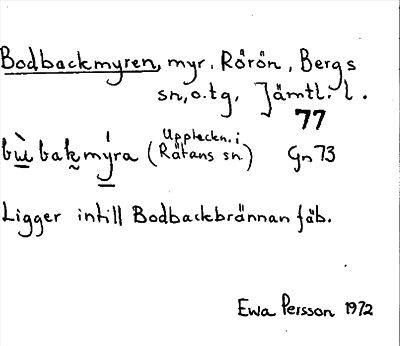 Bodbackmyren, myr. Rörön, Bergs
sn, o. tg, Jämtl. l.
77
bu̱̇̀ bak̰mý̱ra (Uppteckn. i Rätans sn) Gn 73
Ligger intill Bodbackbrännan fäb.
Ewa Persson 1972